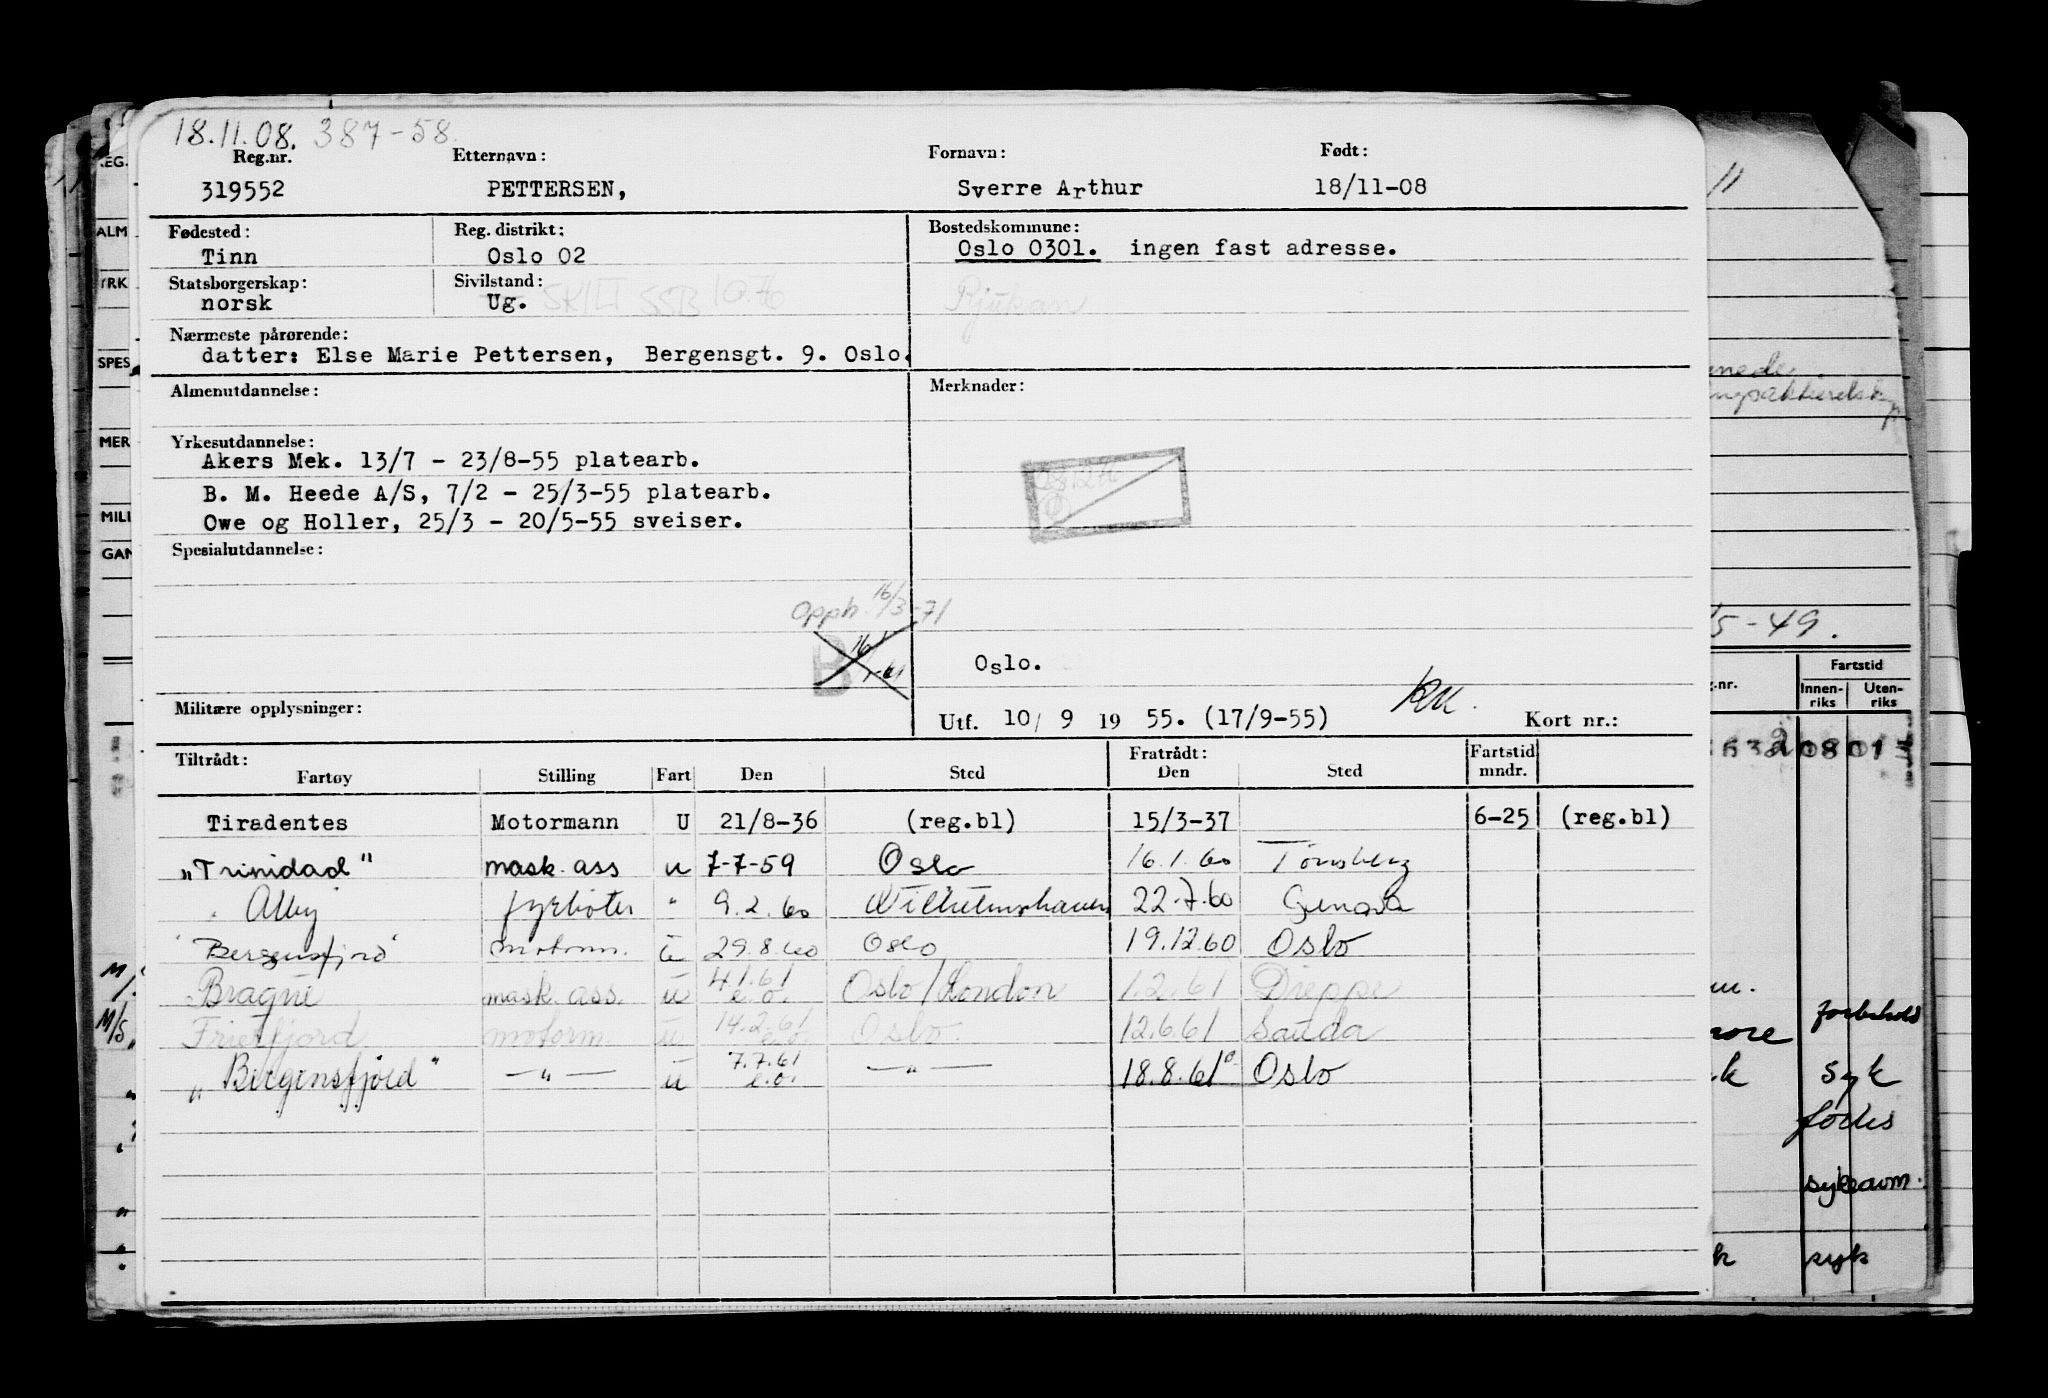 18.11.08. 387-58.
Reg.nr. Etternavn: Fornavn: Født:
319552 PETTERSEN, Sverre Arthur 18/11-08
Fødested: Reg. distrikt: Bostedskommune:
Tinn Oslo 02 Oslo 0301. ingen fast adresse.
Statsborgerskap: Sivilstand:
norsk Ug. SKILT SSB 10.70 Rjukan
Nærmeste pårørende:
datter: Else Marie Pettersen, Bergensgt. 9. Oslo.
Almenutdannelse: Merknader:
Yrkesutdannelse:
Akers Mek. 13/7 - 23/8-55 platearb.
B. M. Heede A/S, 7/2 - 25/3-55 platearb.
Owe og Holler, 25/3 - 20/5-55 sveiser.
Spesialutdannelse:
Opph. 16/3-71
B
Oslo.
Militære opplysninger: Utf. 10/ 9 19 55. (17/9-55) Kort nr.:
Tiltrådt: Fratrådt: Fartstid
Fartøy Stilling Fart Den Sted Den Sted mndr.
Tiradentes Motormann U 21/8-36 (reg.bl) 15/3-37 6-25 (reg.bl)
"Trinidad" mask. ass u 7-7-59 Oslo 16.1.60 Tønsberg
Alby fyrbøter " 9.2.60 Wilhelmshaven 22.7.60 Genova
"Bergensfjord" motorm. u 29.8.60 Oslo 19.12.60 Oslo
Bragne mask. ass. u 4.1.61 e.o. Oslo/London 1.2.61 Dieppe
Frierfjord motorm. u 14.2.61 e.o. Oslo 12.6.61 Sauda
"Bergensfjord" —"— u 7.7.61 e.o. —"— 18.8.61 Oslo
REG.
ALM
YRK
SPES
MER
MILI
GAN
M/
M/S
11
15-49.
Fartstid
g.nr. Innen-riks Uten-riks
forbehold
syk
sykeavm.
syk